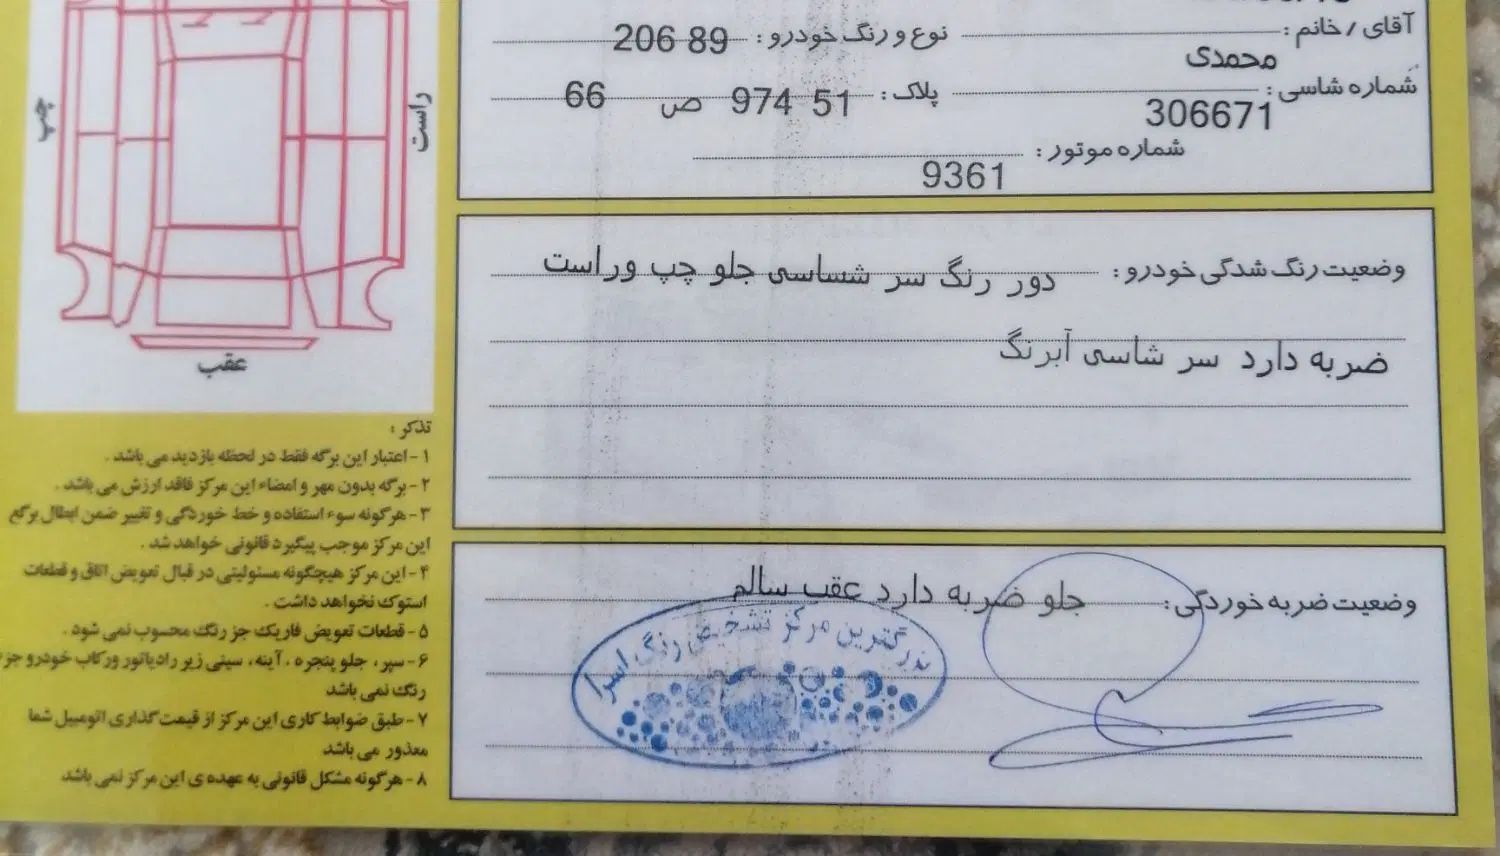 آقای / خانم :
محمدی
نوع و رنگ خودرو : 206 89
شماره شاسی :
306671
پلاک : 51 974 ص 66
شماره موتور :
9361
وضعیت رنگ شدگی خودرو : دور رنگ سر شساسی جلو چپ وراست
ضربه دارد سر شاسی آبرنگ
وضعیت ضربه خوردگی : جلو ضربه دارد عقب سالم
بزرگترین مرکز تشخیص رنگ
راست
چپ
عقب
تذکر :
۱ - اعتبار این برگه فقط در لحظه بازدید می باشد .
۲ - برگه بدون مهر و امضاء این مرکز فاقد ارزش می باشد .
۳ - هرگونه سوء استفاده و خط خوردگی و تغییر ضمن ابطال برگع
این مرکز موجب پیگیرد قانونی خواهد شد .
۴ - این مرکز هیچگونه مسئولیتی در قبال تعویض اتاق و قطعات
استوک نخواهد داشت .
۵ - قطعات تعویض فابریک جز رنگ محسوب نمی شود .
۶ - سپر ، جلو پنجره ، آینه ، سینی زیر رادیاتور ورکاب خودرو جزء
رنگ نمی باشد
۷ - طبق ضوابط کاری این مرکز از قیمت گذاری اتومبیل شما
معذور می باشد
۸ - هرگونه مشکل قانونی به عهده ی این مرکز نمی باشد